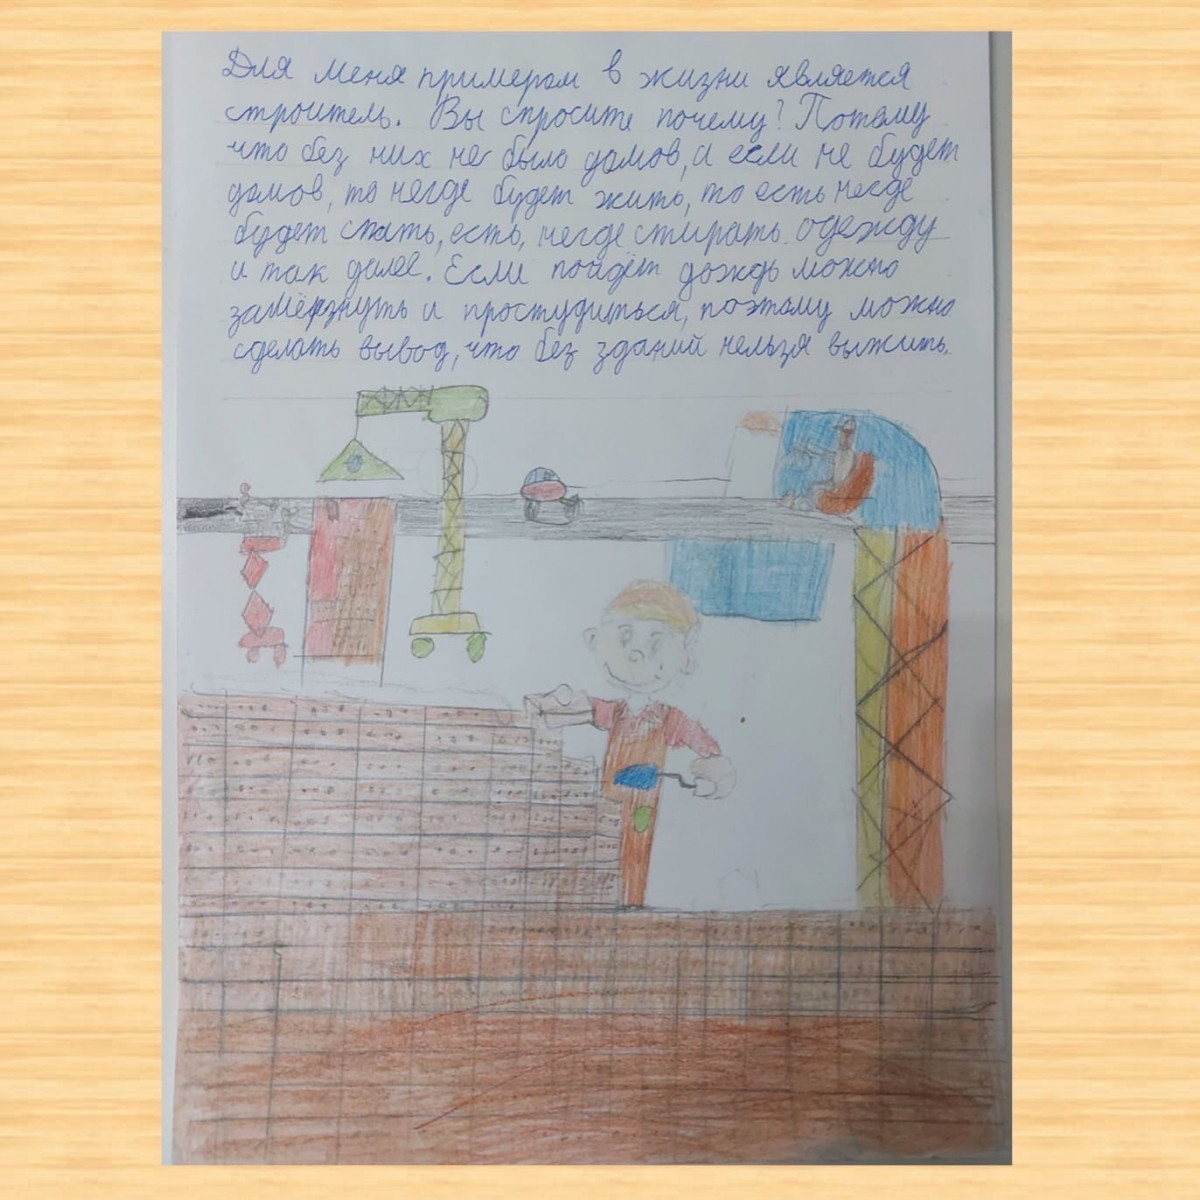 Для меня примером в жизни является
строитель. Вы спросите почему? Потому
что без них не было домов, а если не будет
домов, то негде будет жить, то есть негде
будет спать, есть, негде стирать одежду
и так далее. Если пойдёт дождь можно
замёрзнуть и простудиться, поэтому можно
сделать вывод, что без зданий нельзя выжить.